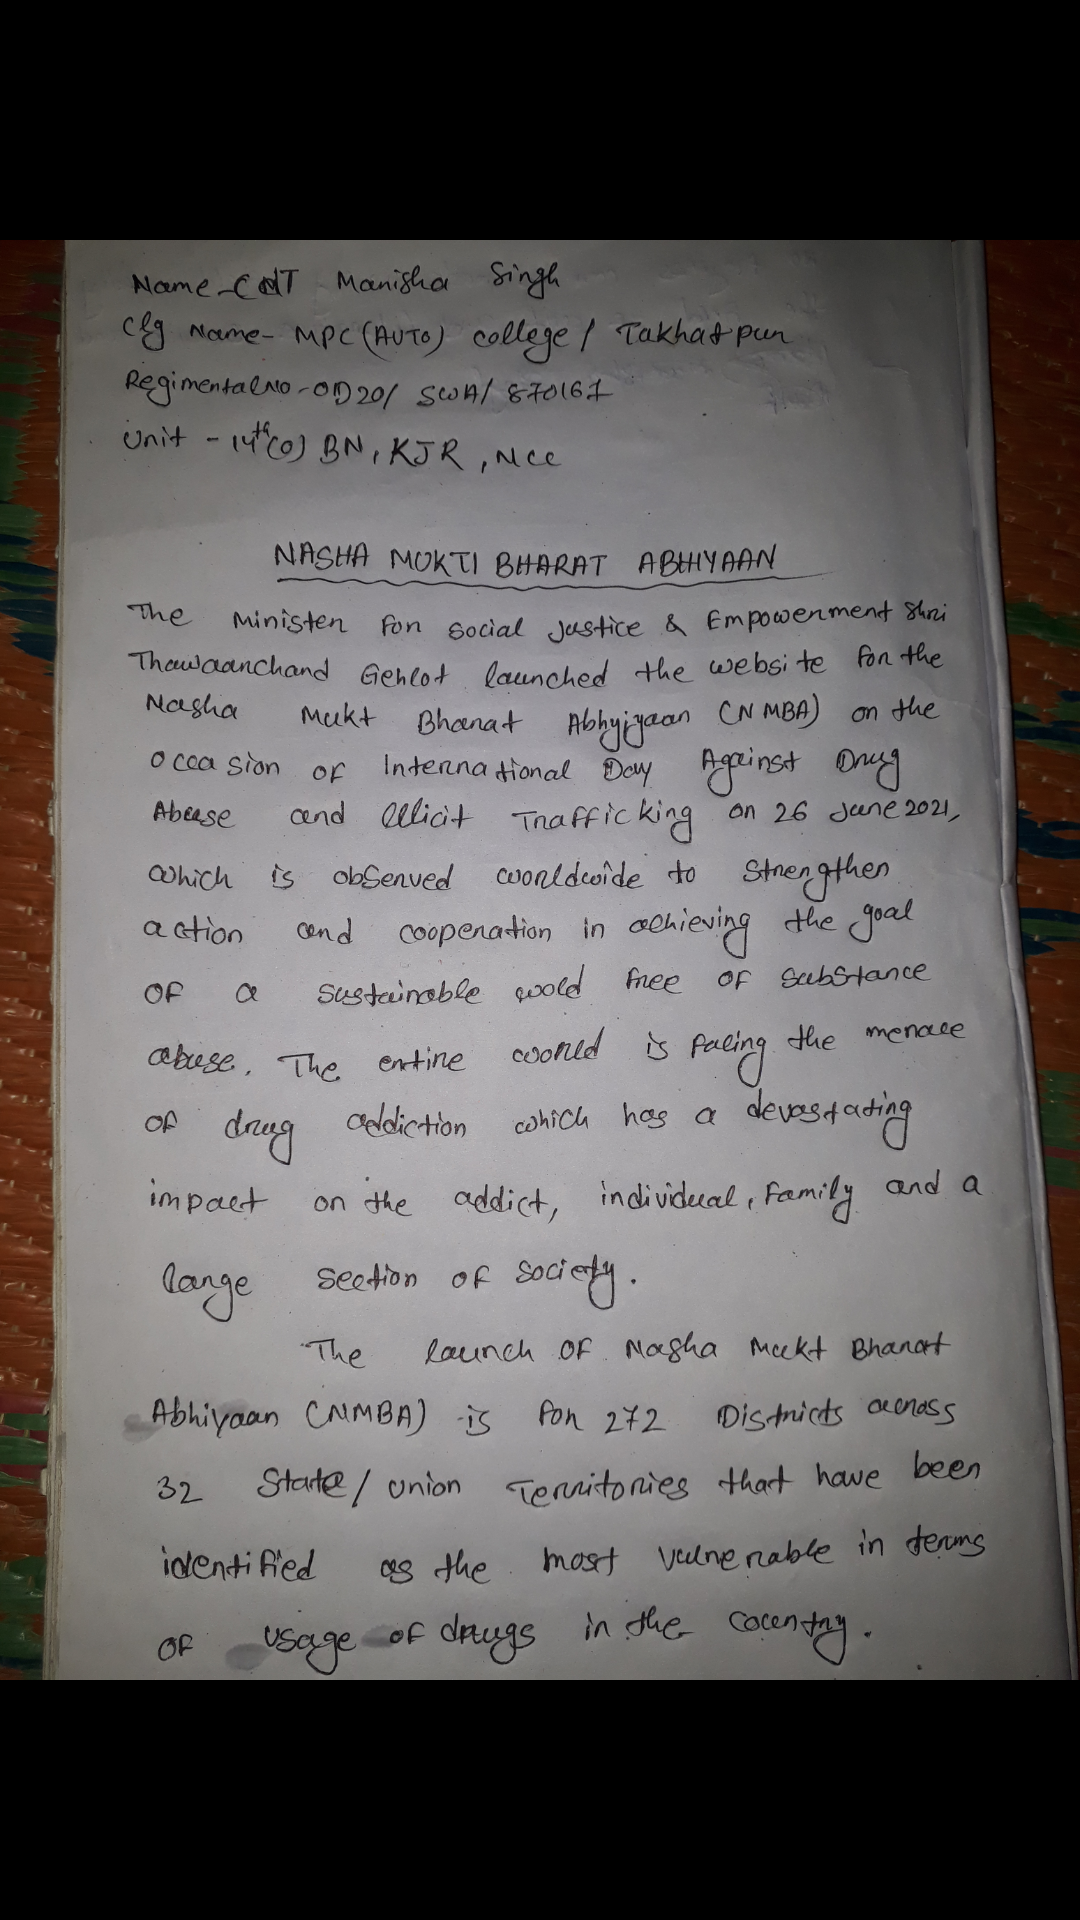 Name-CDT Manisha Singh
Clg Name- MPC (AUTO) college / Takhatpur
Regimental No - OD20/ SWA/ 870167
Unit - 14th (O) BN, KJR, NCC
NASHA MUKTI BHARAT ABHIYAAN
The Minister For Social Justice & Empowerment Shri
Thawaarchand Gehlot launched the website For the
Nasha Mukt Bharat Abhyiyaan (NMBA) on the
occasion OF International Day Against Drug
Abuse and Illicit Trafficking on 26 June 2021,
which is observed worldwide to strengthen
action and cooperation in achieving the goal
OF a sustainable wold free OF substance
abuse. The entire world is facing the menace
OF drug addiction which has a devastating
impact on the addict, individual, Family and a
large section OF society.
The launch OF Nasha Mukt Bharat
Abhiyaan (NMBA) is For 272 Districts across
32 State / Union Territories that have been
identified as the most vulnerable in terms
OF usage OF drugs in the country.